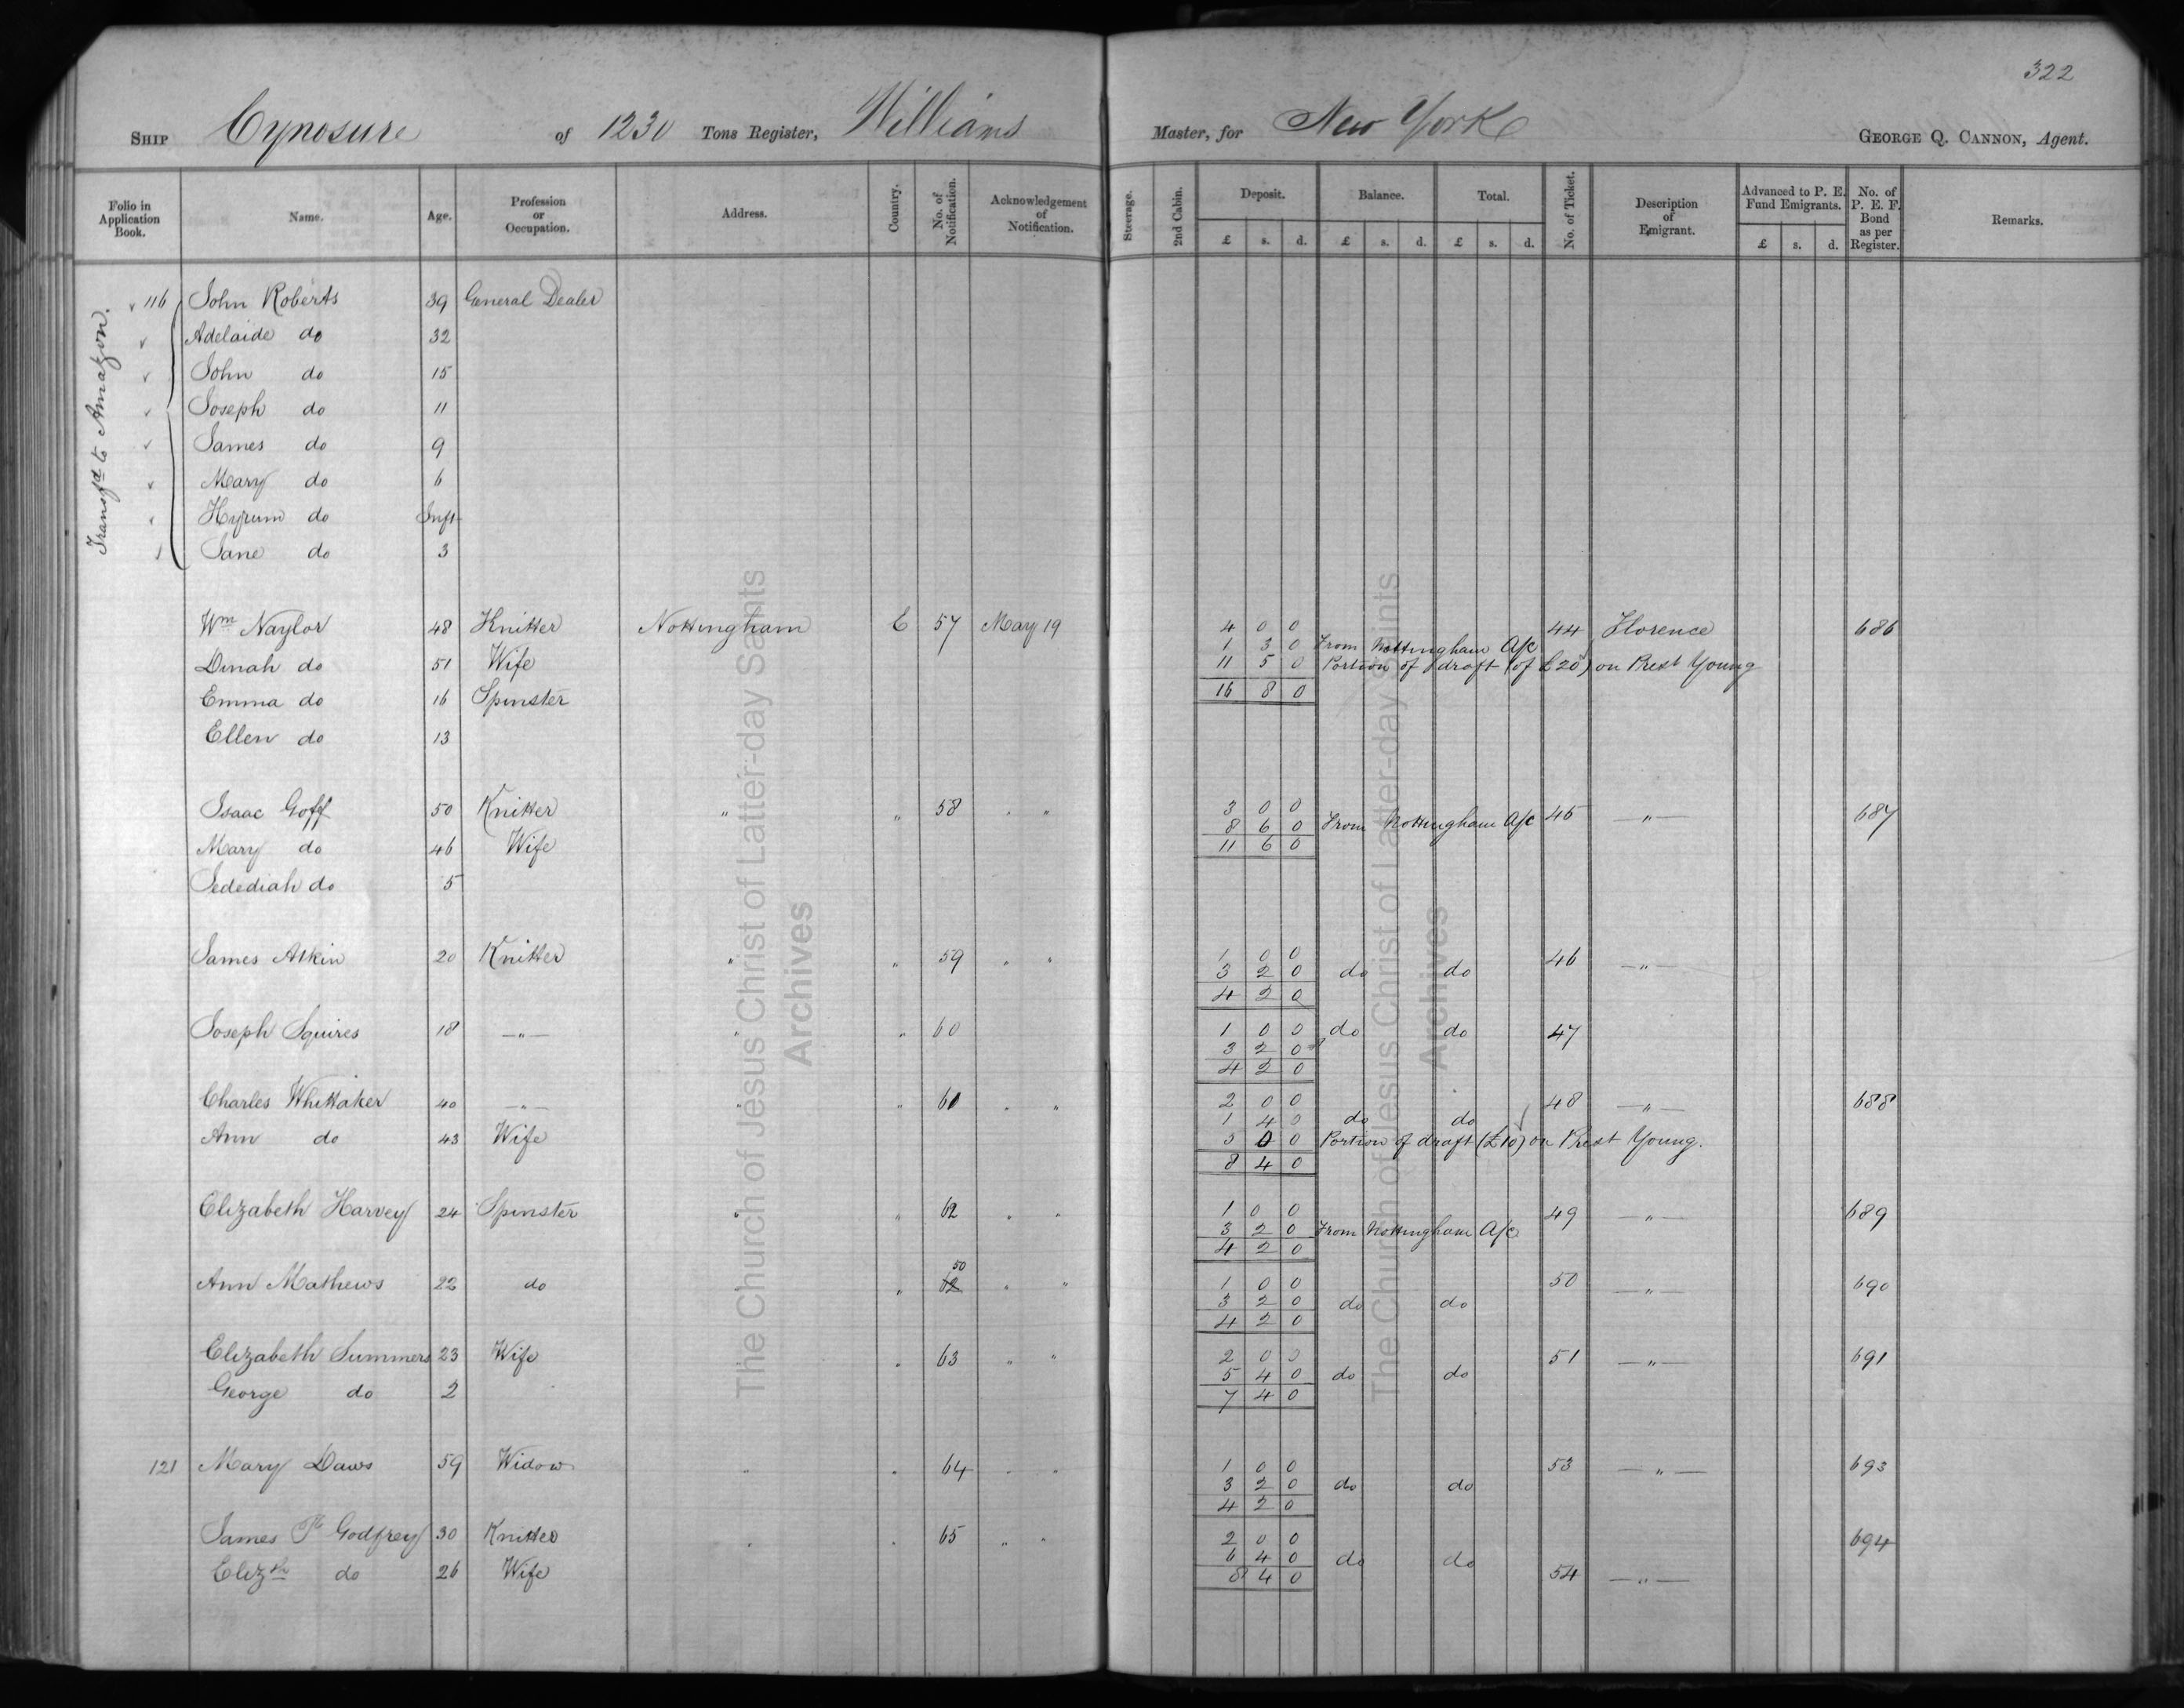 322
SHIP Cynosure of 1230 Tons Register, Williams Master, for New York GEORGE Q. CANNON, Agent.
Folio in Application Book. Name. Age. Profession or Occupation. Address. Country. No. of Notification. Acknowledgement of Notification. Steerage. 2nd Cabin. Deposit. £ s. d. Balance. £ s. d. Total. £ s. d. No. of Ticket. Description of Emigrant. Advanced to P. E. Fund Emigrants. £ s. d. No. of P. E. F. Bond as per Register. Remarks.
Transfd to Amazon.
116 John Roberts 39 General Dealer
Adelaide do 32
John do 15
Joseph do 11
James do 9
Mary do 6
Hyrum do Inft
Jane do 3
Wm Naylor 48 Knitter Nottingham E 57 May 19 4 0 0 44 Florence 686
1 3 0 From Nottingham A/c
Dinah do 51 Wife 11 5 0 Portion of draft (of £20) on Prest Young
Emma do 16 Spinster 16 8 0
Ellen do 13
Isaac Goff 50 Knitter " " 58 " " 3 0 0 45 — " — 687
8 6 0 From Nottingham A/c
Mary do 46 Wife 11 6 0
Jedediah do 5
James Atkin 20 Knitter " " 59 " " 1 0 0 46 — " —
3 2 0 do do
4 2 0
Joseph Squires 18 — " — " " 60 1 0 0 do do 47
3 2 0
4 2 0
Charles Whittaker 40 — " — " " 61 " " 2 0 0 48 — " — 688
1 4 0 do do
Ann do 43 Wife 5 0 0 Portion of draft (£10) on Prest Young.
8 4 0
Elizabeth Harvey 24 Spinster " " 62 " " 1 0 0 49 — " — 689
3 2 0 From Nottingham A/c
4 2 0
50
Ann Mathews 22 do " 62 " " 1 0 0 50 — " — 690
3 2 0 do do
4 2 0
Elizabeth Summers 23 Wife " 63 " " 2 0 0 51 — " — 691
5 4 0 do do
George do 2 7 4 0
121 Mary Daws 59 Widow " " 64 " " 1 0 0 53 — " — 693
3 2 0 do do
4 2 0
James Godfrey 30 Knitter " " 65 " " 2 0 0 694
6 4 0 do do
Elizth do 26 Wife 8 4 0 54 — " —
The Church of Jesus Christ of Latter-day Saints
Archives
The Church of Jesus Christ of Latter-day Saints
Archives